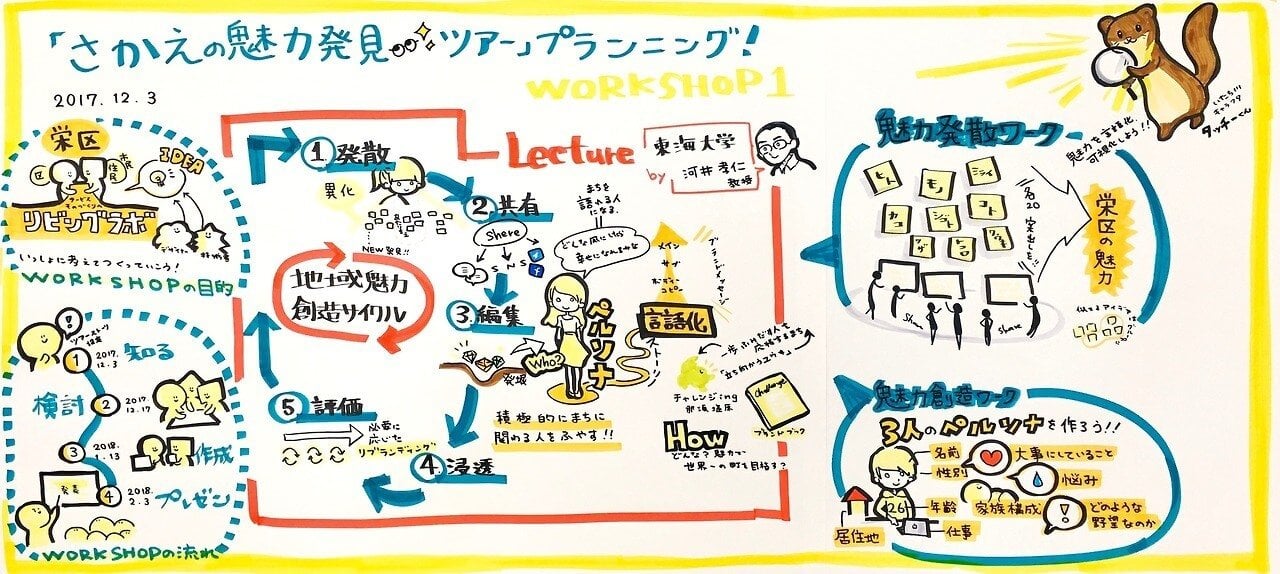 「さかえの魅力発見ツアー」プランニング!
WORKSHOP1
2017.12.3
栄区
区
市民
住民
IDEA
サービス
ものづくりの
リビングラボ
デザイナー
いっしょに考えてつくっていこう!
WORKSHOPの目的
ツアー
2017.
12.3
①
知る
検討
②
2017.
12.17
③
2018.
作成
発表
④
2018.
2.3
プレゼン
WORKSHOPの流れ
Lecture
by
東海大学
河井孝仁
教授
①発散
異化
NEW発見!!
②共有
Shere
SNS
まちを
語れる人
になる。
どんな風にしたら
地域魅力
創造サイクル
③編集
発掘
Who?
ペルソナ
積極的にまちに
関わる人をふやす!!
④浸透
⑤評価
必要に
応じた
リブランディング
メイン
サブ
ボディ
コピー
ブランドメッセージ
言語化
ストーリー
チャレンジing
那須塩原
challenge
ブランドブック
How
どんな?魅力で
世界一の町を目指す?
いたち川
キャラクター
タッチーくん
魅力を言語化
可視化しよう!!
魅力発散ワーク
ヒト
モノ
ミライ
カコ
コト
各20
栄区の魅力
Share
Share
魅力創造ワーク
3人のペルソナを作ろう!!
名前
性別
大事にしていること
悩み
26
年齢
家族構成
どのような
野望なのか
居住地
仕事